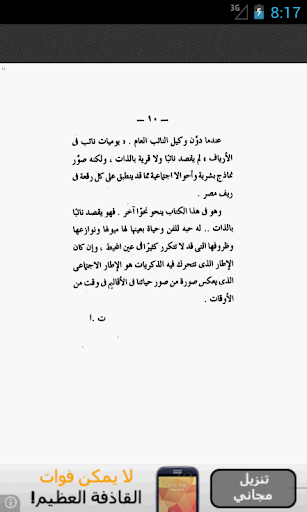 3G 8:17
— ١٠ —
عندما دوّن وكيل النائب العام . « يوميات نائب فى
الأرياف » لم يقصد نائبًا ولا قرية بالذات ، ولكنه صوّر
نماذج بشرية وأحوالا اجتماعية مما قد ينطبق على كل رقعة فى
ريف مصر .
وهو فى هذا الكتاب ينحو نحوًا آخر . فهو يقصد نائبًا
بالذات .. له حبه للفن وحياة بعينها لها ميولها ونوازعها
وظروفها التى قد لا تتكرر كثيرًا فى عين المحيط ، وإن كان
الإطار الذى تتحرك فيه الذكريات هو الإطار الاجتماعى
الذى يعكس صورة من صور حياتنا فى الأقاليم فى وقت من
الأوقات .
ت . ا
لا يمكن فوات
القاذفة العظيم!
تنزيل
مجاني